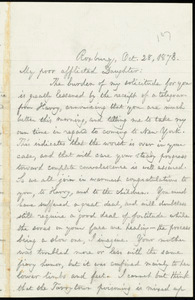 Roxbury, Oct. 28, 1878.
My poor afflicted Daughter:
The burden of my solicitude for you
is partly lessened by the receipt of a telegram
from Harry, announcing that you are much
better this morning, and telling me to take my
own time in regard to coming to New York.
This indicates that the worst is over in your
case, and that with care your steady progress
toward complete convalescence is well assured.
I am all give in warmest congratulations
to Harry, and to the children. You must
have suffered a great deal, and will doubtless
still require a good deal of fortitude while
the sores on your face are healing—the process
being a slow one, I imagine. Your mother
was troubled more or less with the same,
from
lower limbs and feet. I cannot but think
that the Tarrytown poisoning is mixed up